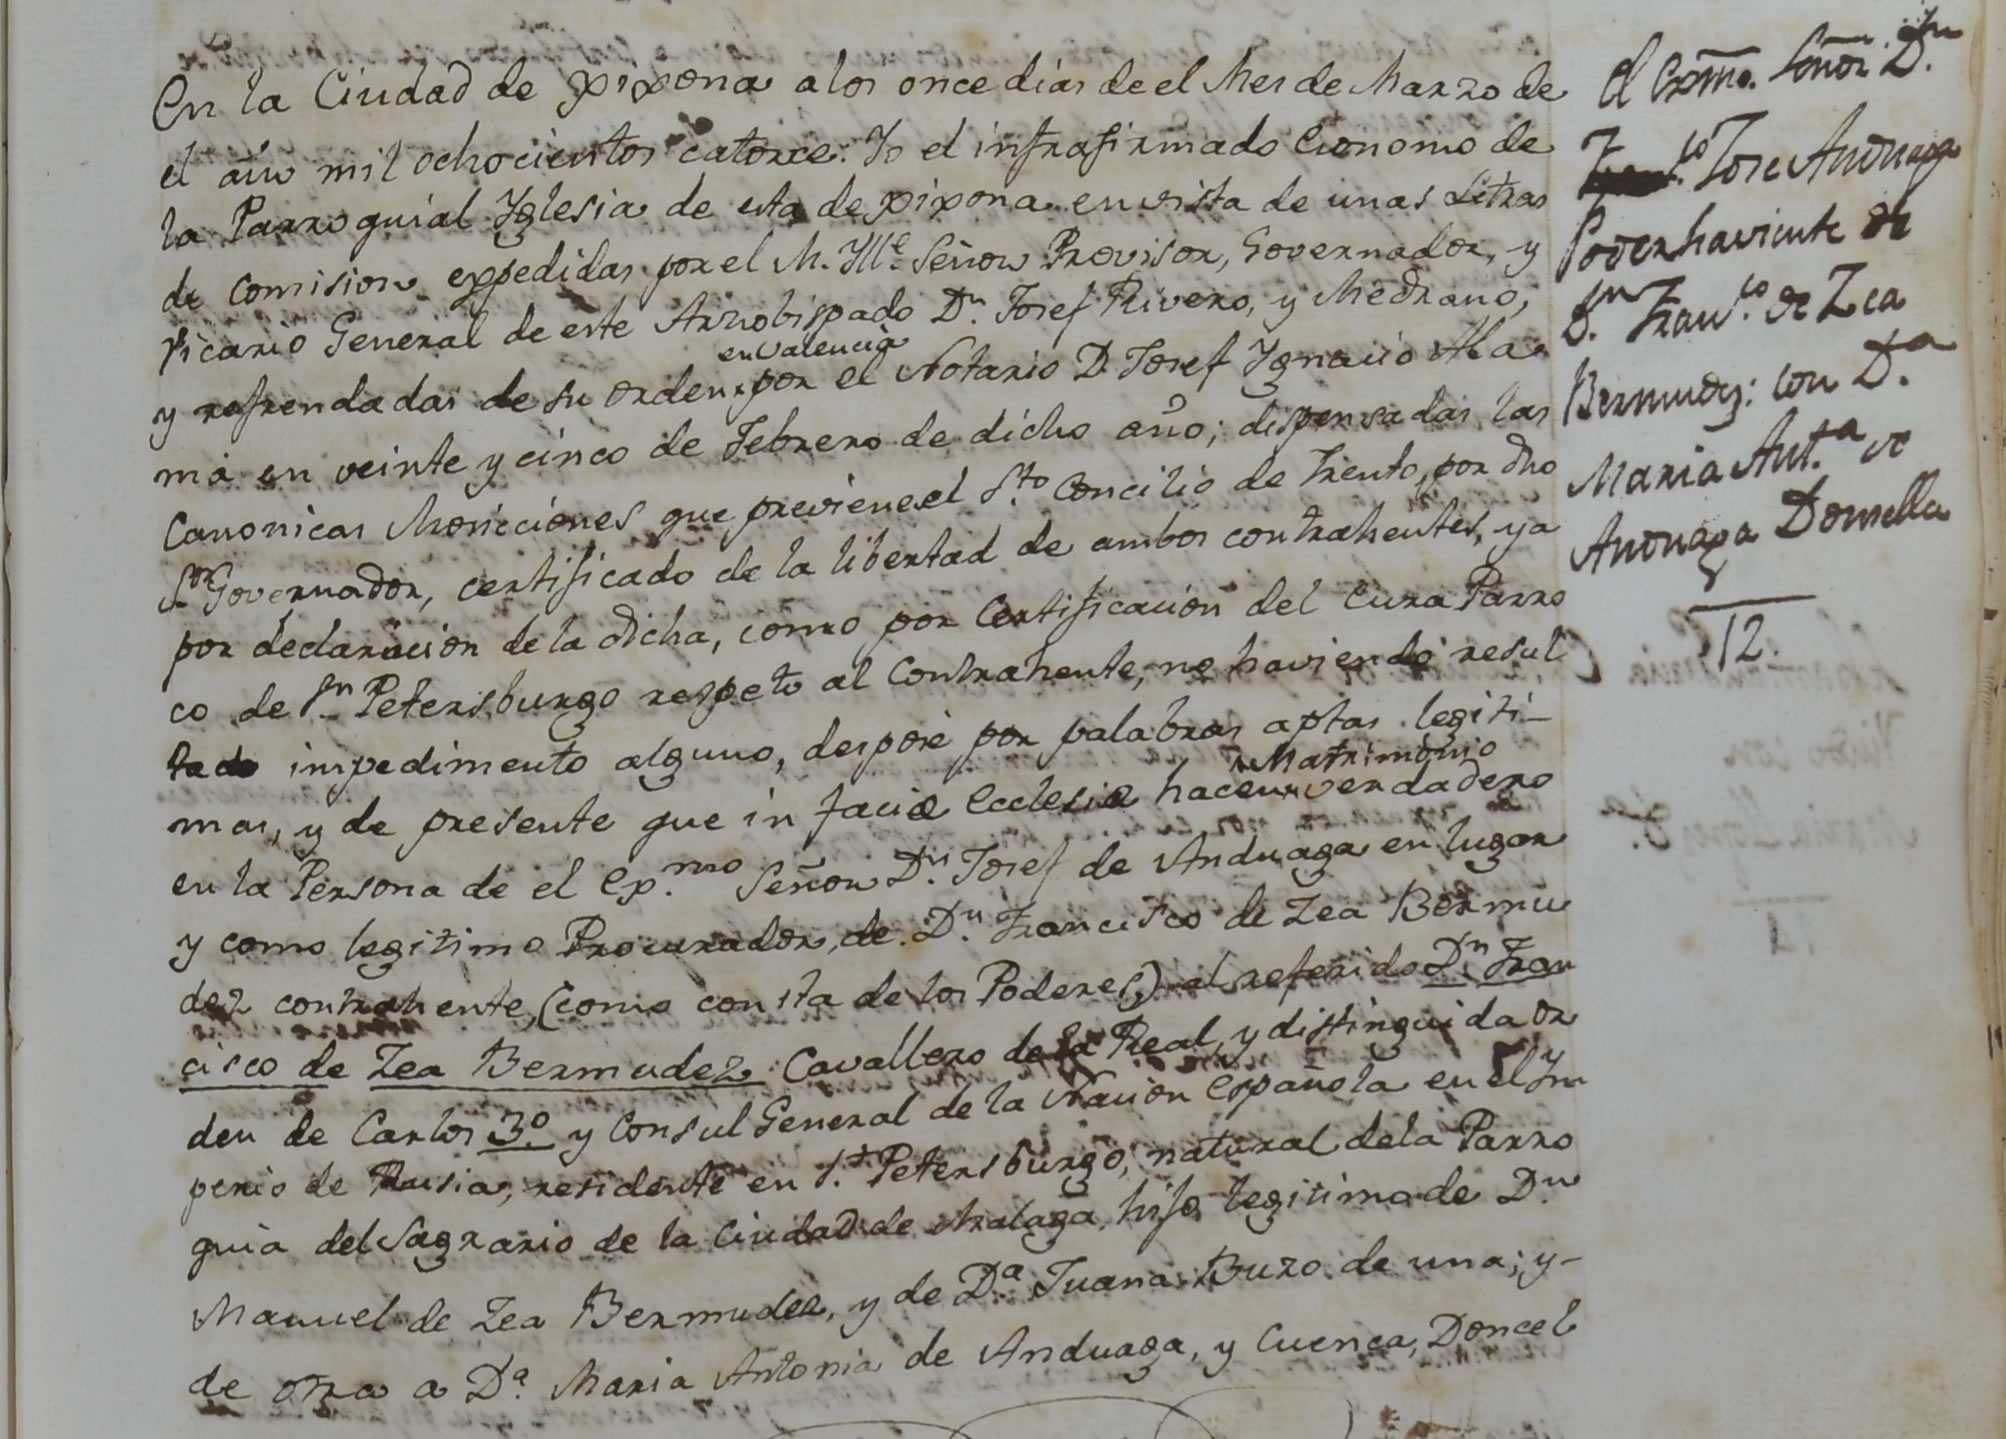 En la Ciudad de Xixona a los once dias de el Mes de Marzo de
el año mil ochocientos catorce. Yo el infrafirmado Economo de
la Parroquial Yglesia de esta de Xixona en vista de unas Letras
de Comision expedidas por el M. Ylle Señor Provisor, Governador, y
Vicario General de este Arzobispado Dn. Josef Rivero, y Medrano,
en Valencia
y refrendadas de su orden por el Notario D. Josef Ygnacio Ala-
má en veinte y cinco de Febrero de dicho año; dispensadas las
Canonicas Moniciones que previene el Sto. Concilio de Trento, por dho
Sor. Governador, certificado de la libertad de ambos contrahentes, ya
por declaracion de la dicha, como por Certificacion del Cura Parro
co de Sn. Petersburgo respeto al Contrahente, no haviendo resul
tado impedimento alguno, desposé por palabras aptas legiti-
Matrimonio
mas, y de presente que in faciæ Ecclesiæ hacen verdadero
en la Persona de el Exmo. Señor Dn. Josef de Anduaga en lugar
y como legitimo Procurador, de Dn. Francisco de Zea Bermu
dez contrahente, (como consta de los Poderes,) al referido Dn. Fran
cisco de Zea Bermudez Cavallero de la Real, y distinguida or
den de Carlos 3º. y Consul General de la Nacion Española en el Ym
perio de Rusia, residente en S. Petersburgo, natural de la Parro
quia del Sagrario de la Ciudad de Malaga, hijo legitimo de Dn.
Manuel de Zea Bermudez, y de Da. Juana Buzo de una; y-
de otra a Da. Maria Antonia de Anduaga, y Cuenca, Doncel
El Exmo. Señor Dn.
Jose Anduaga
Poderhaviente de
Dn. Franco. de Zea
Bermudez: con Da.
Maria Anta. de
Anduaga Doncella
12.